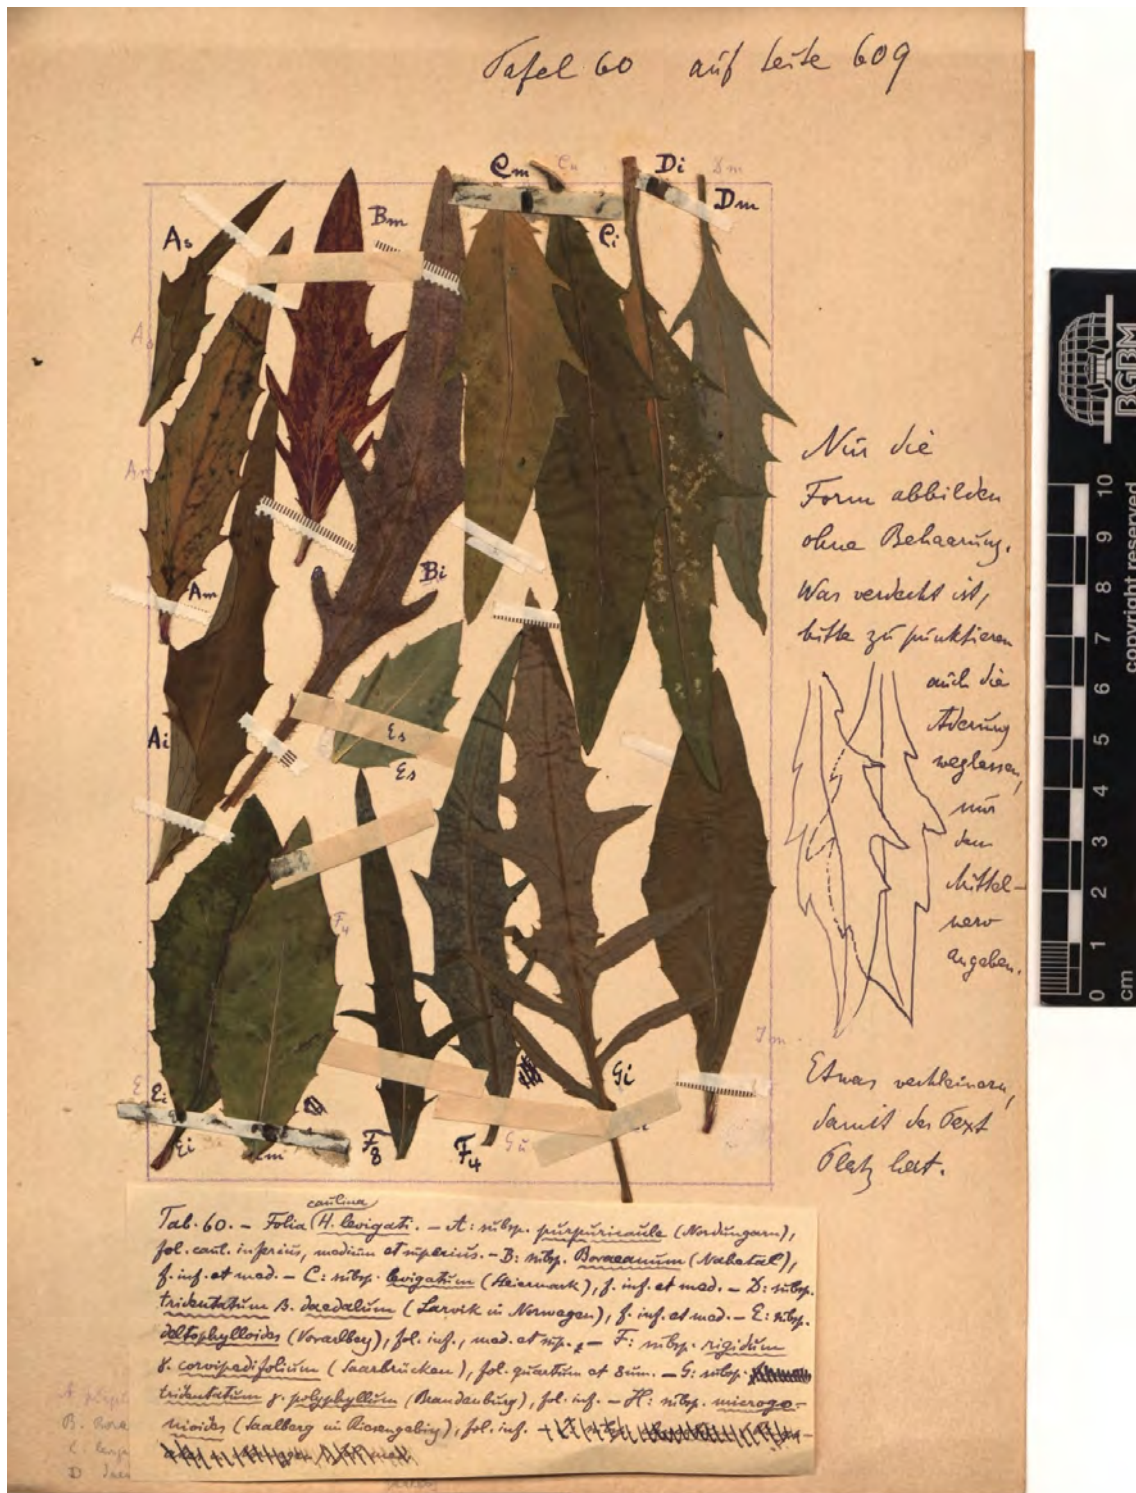 Tafel 60 auf Seite 609
Cm
Cu
Di
Dm
As
Bm
Ci
Dm
A
Am
Am
Bi
Ai
Es
Es
F4
Ei
Ei
F8
F4
Gu
Gi
Jm.
Nur die
Form abbilden
ohne Behaarung.
Was verdeckt ist,
bitte zu punktieren
auch die
Aderung
weglassen,
nur
den
Mittel-
nerv
angeben.
Etwas verkleinern,
damit der Text
Platz hat.
caulina
Tab. 60. – Folia (H. levigati. – A: subsp. purpuricaule (Nordungarn),
fol. caul. inferius, medium et superius. – B: subsp. Boraeanum (Nahetal),
f. inf. et med. – C: subsp. levigatum (Steiermark), f. inf. et med. – D: subsp.
tridentatum β. daedalum (Larvik in Norwegen), f. inf. et med. – E: subsp.
deltophylloides (Vorarlberg), fol. inf., med. et sup. – F: subsp. rigidum
γ. corvipedifolium (Saarbrücken), fol. quartum et 8um. – G: subsp.
tridentatum γ. polyphyllum (Brandenburg), fol. inf. – H: subsp. microge-
nioides (Saalberg in Riesengebirg), fol. inf.
B. Bora
D
BGBM
copyright reserved
0 1 2 3 4 5 6 7 8 9 10
cm